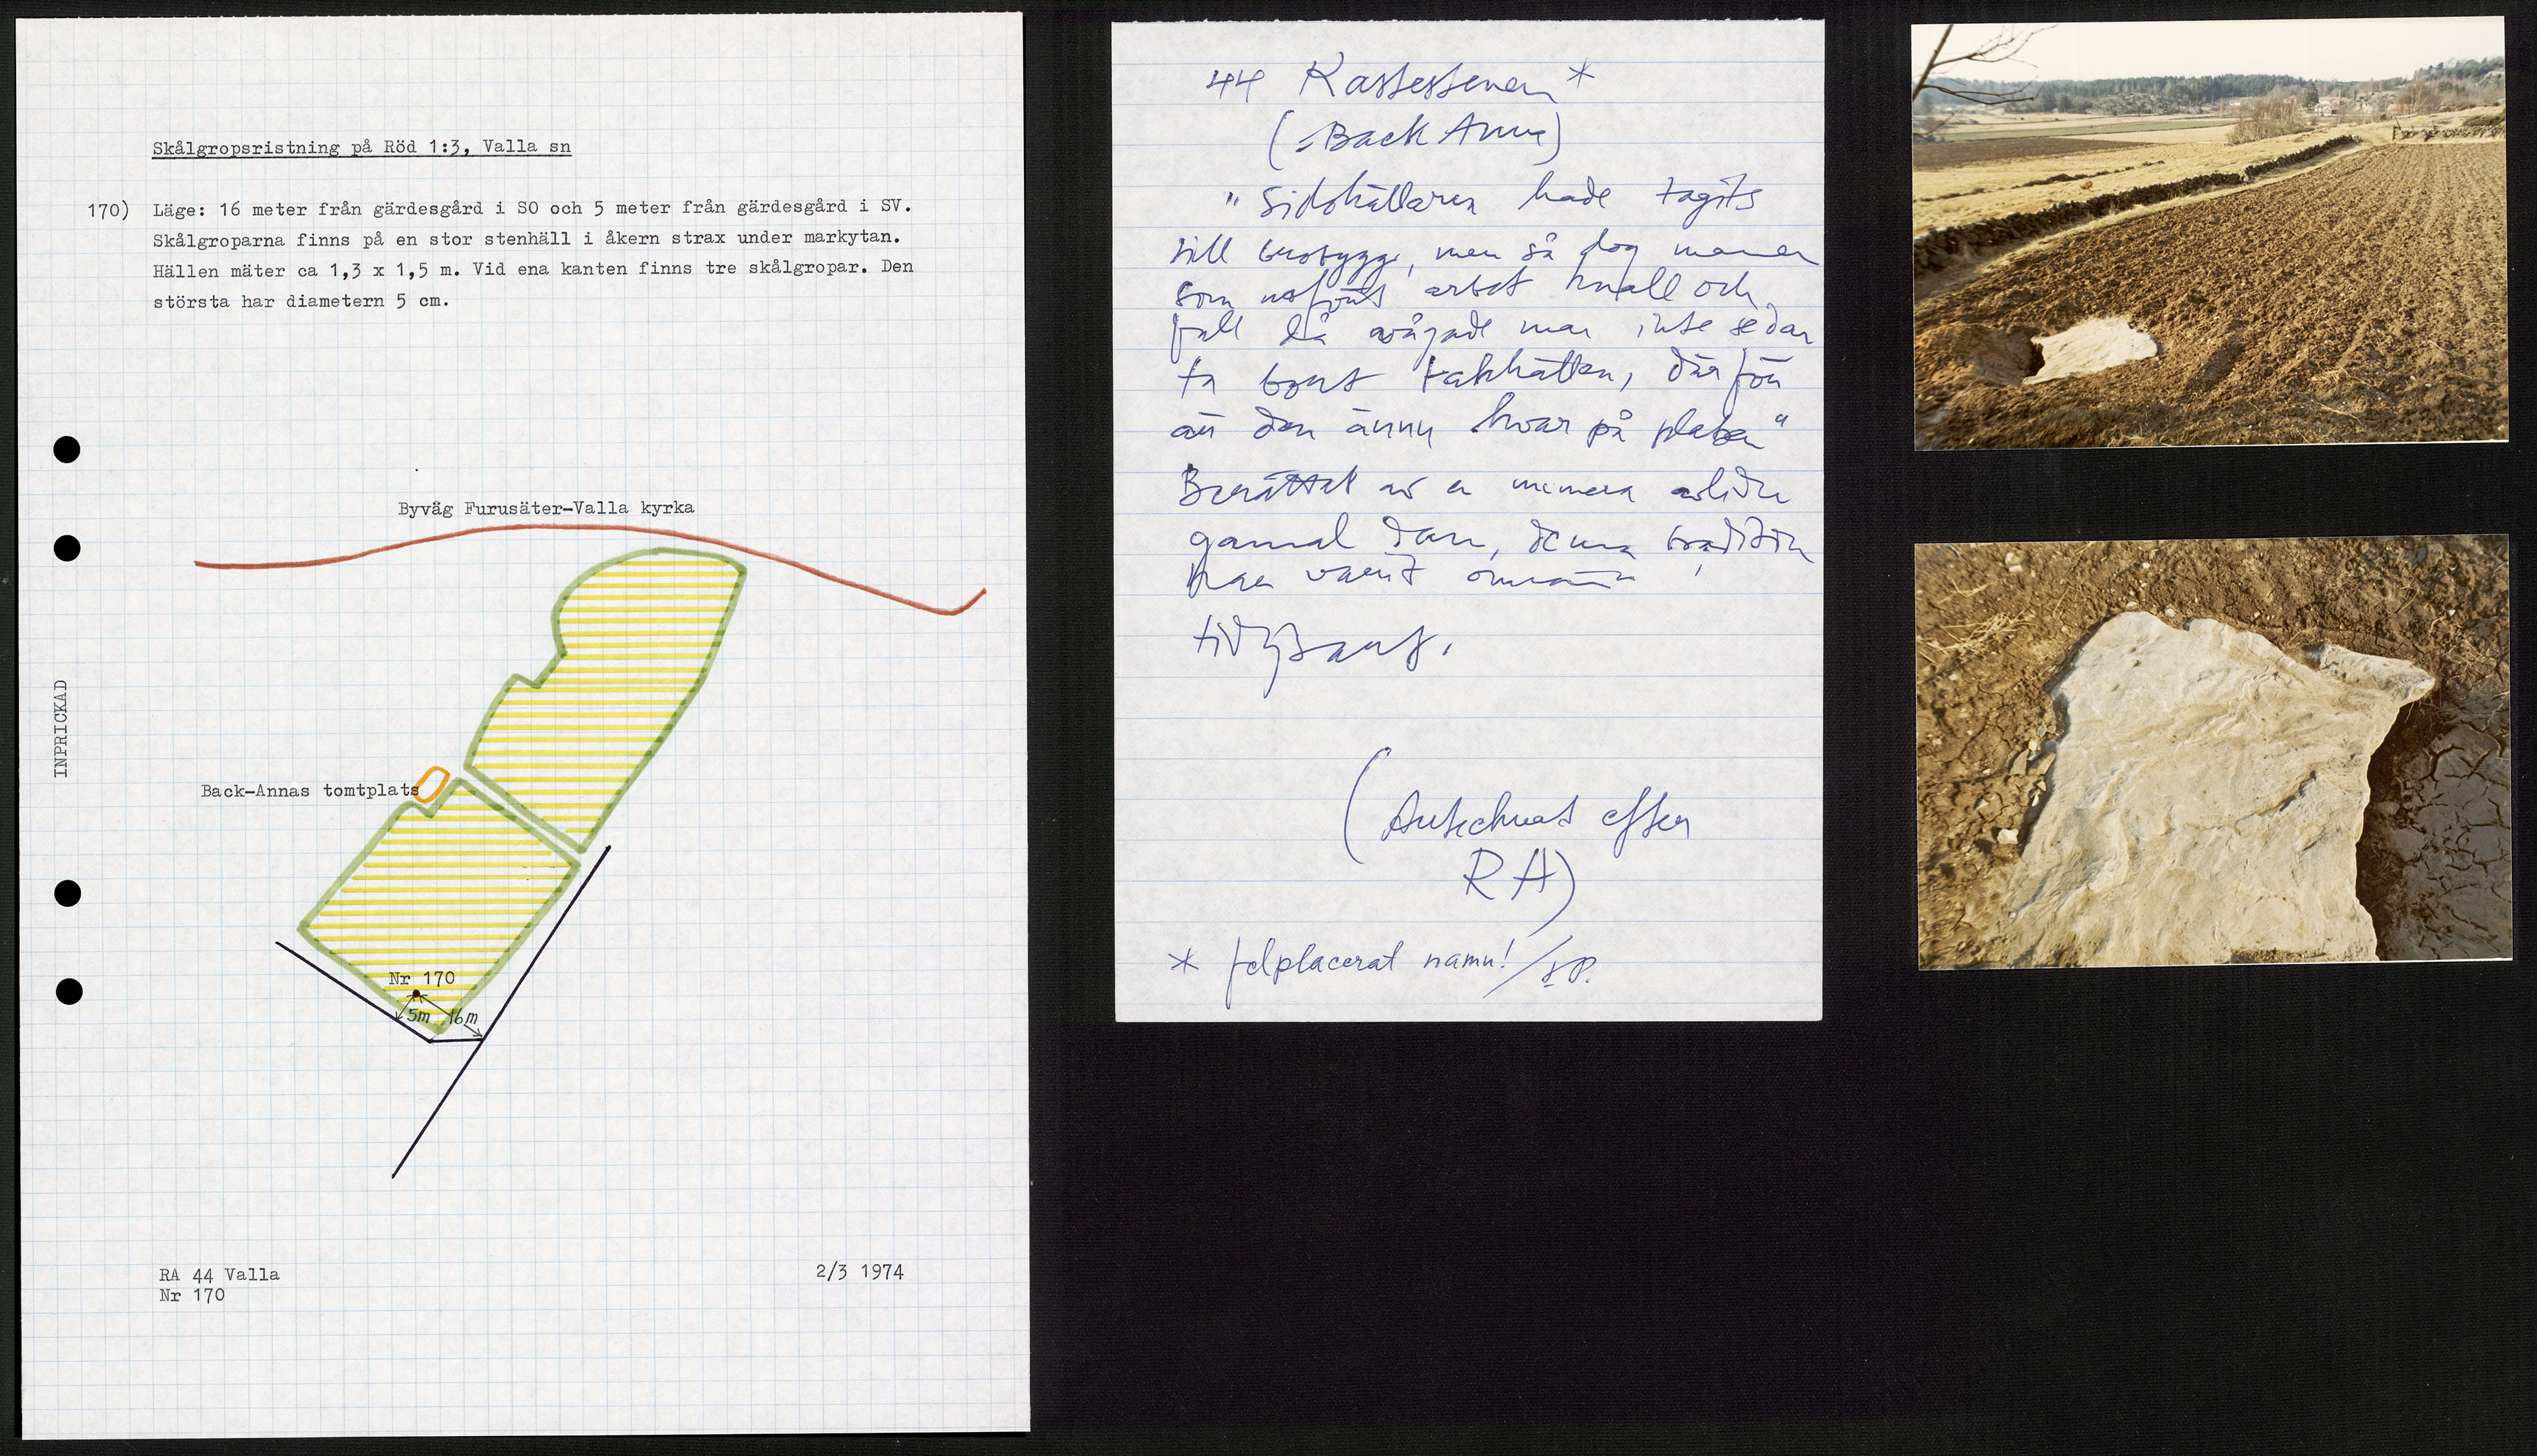 Skålgropsristning på Röd 1:3, Valla sn
170) Läge: 16 meter från gärdesgård i SO och 5 meter från gärdesgård i SV.
Skålgroparna finns på en stor stenhäll i åkern strax under markytan.
Hällen mäter ca 1,3 x 1,5 m. Vid ena kanten finns tre skålgropar. Den
största har diametern 5 cm.
Byväg Furusäter-Valla kyrka
INPRICKAD
Back-Annas tomtplats
Nr 170
5m 16m
RA 44 Valla
Nr 170
2/3 1974
44 *
Back
" hade tagits
till men så dog
som och
fall då vågade man inte sedan
ta bort takhällen, därför
är den ännu kvar på platsen"
Berättat av en numera avliden
gammal dam, denna tradition
har varit
(Antecknat efter
RA)
* felplacerat namn!